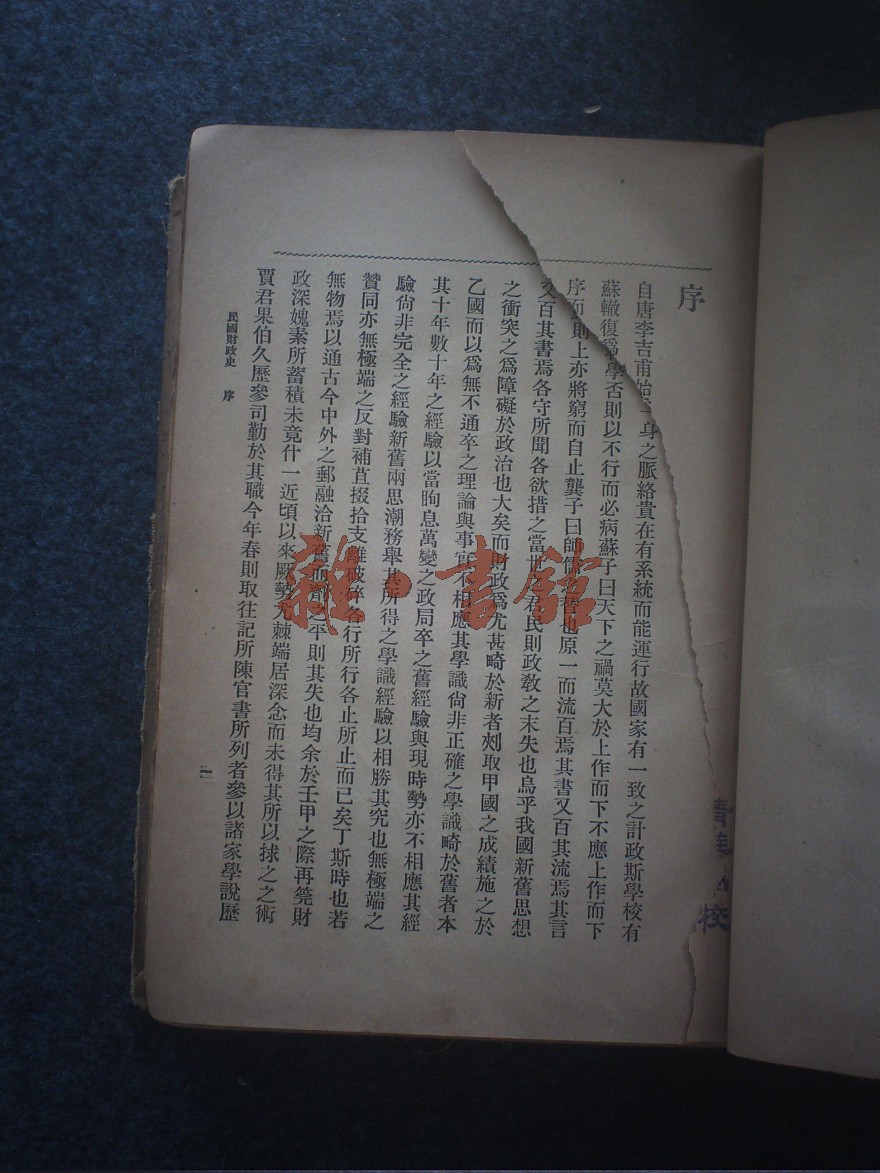 序
自唐李吉甫始身之脈絡貴在有系統而能運行故國家有一致之計政斯學校有
蘇轍復爲學否則以不行而必病蘇子曰天下之禍莫大於上作而下不應上作而下
序而則上亦將窮而自止龔子曰師儒之替也原一而流百焉其書又百其流焉其言
又百其書焉各守所聞各欲措之當世之君民則政敎之末失也烏乎我國新舊思想
之衝突之爲障礙於政治也大矣而財政爲尤甚畸於新者剡取甲國之成績施之於
乙國而以爲無不通卒之理論與事實不相應其學識尙非正確之學識畸於舊者本
其十年數十年之經驗以當眴息萬變之政局卒之舊經驗與現時勢亦不相應其經
驗尙非完全之經驗新舊兩思潮務舉其所得之學識經驗以相勝其究也無極端之
贊同亦無極端之反對補苴掇拾支離破碎各行所行各止所止而已矣丁斯時也若
無物焉以通古今中外之郵融洽新舊而劑之平則其失也均余於壬甲之際再筦財
政深媿素所蓄積未竟什一近頃以來厥勢尤棘端居深念而未得其所以捄之之術
賈君果伯久歷參司勤於其職今年春則取往記所陳官書所列者參以諸家學說歷
民國財政史 序
一
雜·書館
校